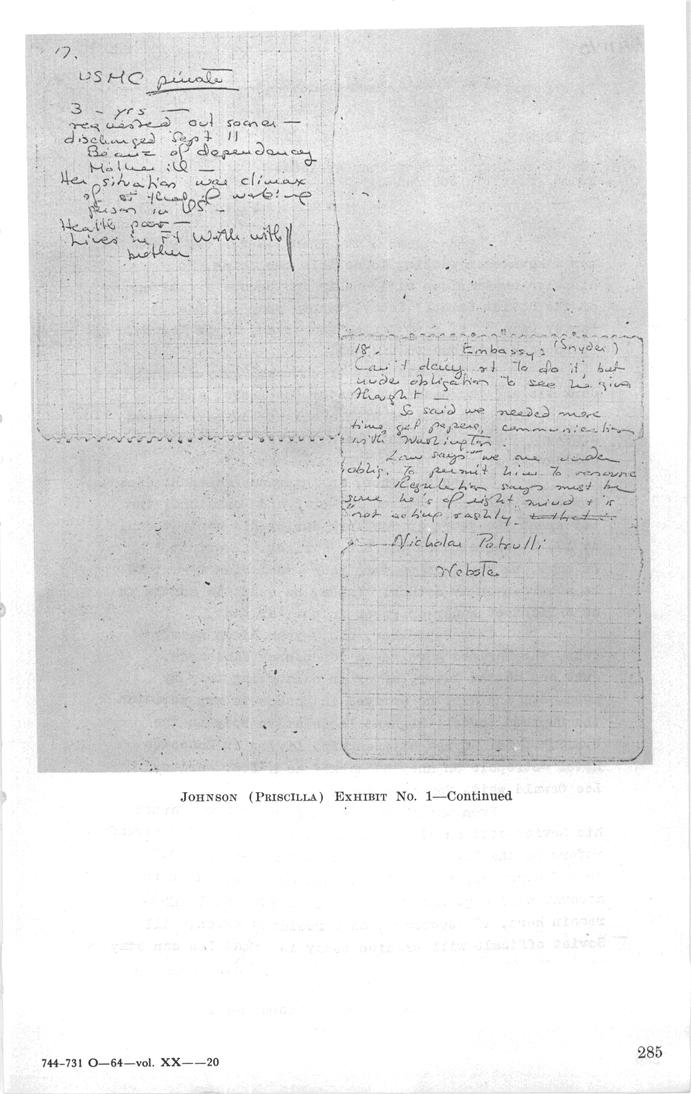 17.
USMC private
3 - yrs —
requested out sooner —
discharged Sept 11
Because of dependency
Mother ill —
Her situation was climax
of working
person in US —
Health poor —
Lives in Ft Worth with
brother
18. Embassy: (Snyder)
Can't deny rt to do it, but
under obligation to see he give
thought —
So said we needed more
time, get papers, communication
with Washington.
Law says we are under
oblig. to permit him to renounce
Regulation says must be
sure he's of right mind & is
not acting rashly.
Nicholas Petrulli
Webster
JOHNSON (PRISCILLA) EXHIBIT No. 1—Continued
285
744-731 O—64—vol. XX——20